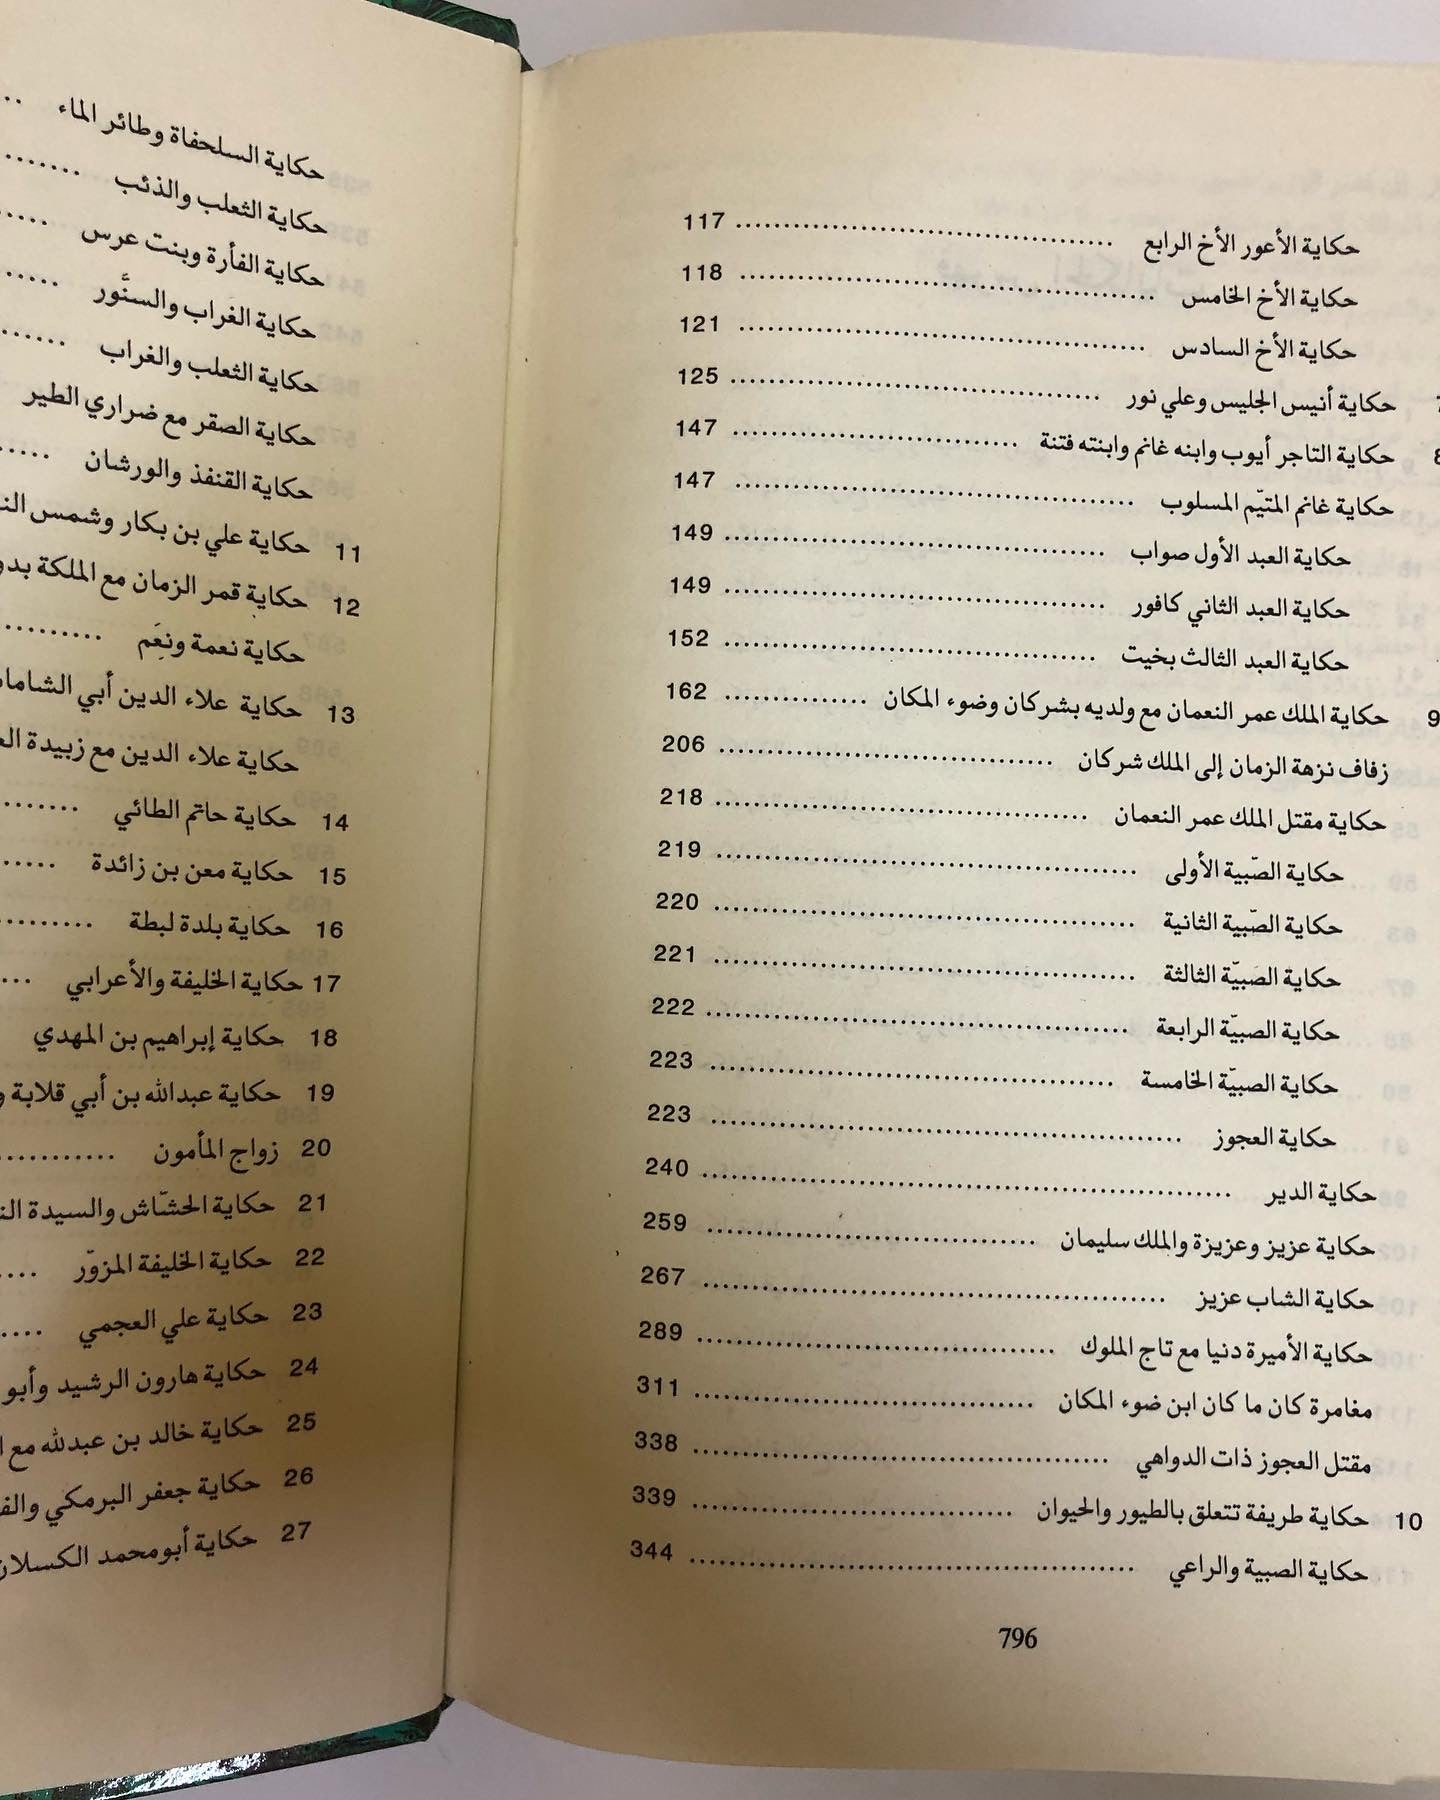 حكاية الأعور الأخ الرابع ........ 117
حكاية الأخ الخامس ........ 118
حكاية الأخ السادس ........ 121
حكاية أنيس الجليس وعلي نور ........ 125
8 حكاية التاجر أيوب وابنه غانم وابنته فتنة ........ 147
حكاية غانم المتيّم المسلوب ........ 147
حكاية العبد الأول صواب ........ 149
حكاية العبد الثاني كافور ........ 149
حكاية العبد الثالث بخيت ........ 152
9 حكاية الملك عمر النعمان مع ولديه بشركان وضوء المكان ........ 162
زفاف نزهة الزمان إلى الملك شركان ........ 206
حكاية مقتل الملك عمر النعمان ........ 218
حكاية الصّبية الأولى ........ 219
حكاية الصّبية الثانية ........ 220
حكاية الصبيّة الثالثة ........ 221
حكاية الصبيّة الرابعة ........ 222
حكاية الصبيّة الخامسة ........ 223
حكاية العجوز ........ 223
حكاية الدير ........ 240
حكاية عزيز وعزيزة والملك سليمان ........ 259
حكاية الشاب عزيز ........ 267
حكاية الأميرة دنيا مع تاج الملوك ........ 289
مغامرة كان ما كان ابن ضوء المكان ........ 311
مقتل العجوز ذات الدواهي ........ 338
10 حكاية طريفة تتعلق بالطيور والحيوان ........ 339
حكاية الصبية والراعي ........ 344
796
حكاية السلحفاة وطائر الماء ..
حكاية الثعلب والذئب .......
حكاية الفأرة وبنت عرس .....
حكاية الغراب والسنَّور .....
حكاية الثعلب والغراب .......
حكاية الصقر مع ضراري الطير
حكاية القنفذ والورشان .....
11 حكاية علي بن بكار وشمس
12 حكاية قمر الزمان مع الملكة
حكاية نعمة ونعَم ..........
13 حكاية علاء الدين أبي
حكاية علاء الدين مع زبيدة
14 حكاية حاتم الطائي .......
15 حكاية معن بن زائدة .....
16 حكاية بلدة لبطة ........
17 حكاية الخليفة والأعرابي ...
18 حكاية إبراهيم بن المهدي
19 حكاية عبدالله بن أبي قلابة
20 زواج المأمون ...........
21 حكاية الحشّاش والسيدة
22 حكاية الخليفة المزوّر ....
23 حكاية علي العجمي .....
24 حكاية هارون الرشيد وأبو
25 حكاية خالد بن عبدلله مع
26 حكاية جعفر البرمكي
27 حكاية أبومحمد الكسلان